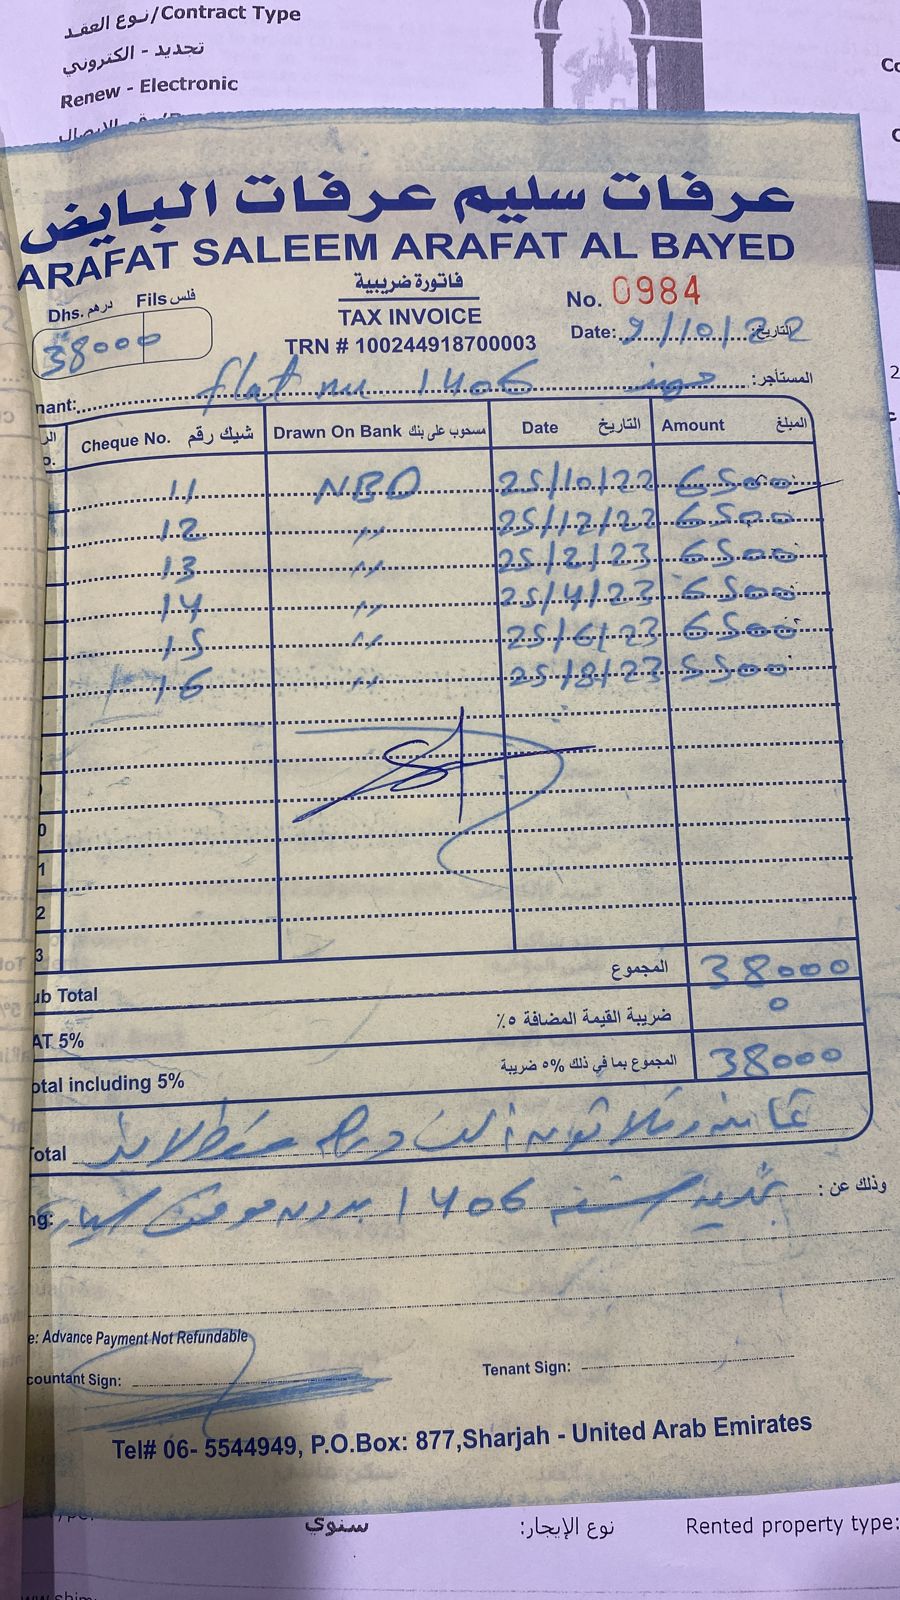 نوع العقد/Contract Type
تجديد - الكتروني
Renew - Electronic
عرفات سليم عرفات البايض
ARAFAT SALEEM ARAFAT AL BAYED
Dhs. درهم Fils فلس
38000
فاتورة ضريبية
TAX INVOICE
TRN # 100244918700003
No. 0984
Date: 9/10/22 التاريخ:
nant: flat nu 1406 المستأجر:
Cheque No. شيك رقم Drawn On Bank مسحوب على بنك Date التاريخ Amount المبلغ
11 NBD 25/10/22 6500
12 〃 25/12/22 6500
13 〃 25/2/23 6500
14 〃 25/4/23 6500
15 〃 25/6/23 6500
16 〃 25/8/23 5500
0
1
2
3
ub Total المجموع 38000
AT 5% ضريبة القيمة المضافة ٥٪ 0
otal including 5% المجموع بما في ذلك ٥% ضريبة 38000
Total ثمانية وثلاثون الف درهم فقط لا غير
ng: 1406 بدون موقف سيارة وذلك عن:
e: Advance Payment Not Refundable
countant Sign: Tenant Sign:
Tel# 06- 5544949, P.O.Box: 877,Sharjah - United Arab Emirates
سنوي نوع الإيجار: Rented property type: